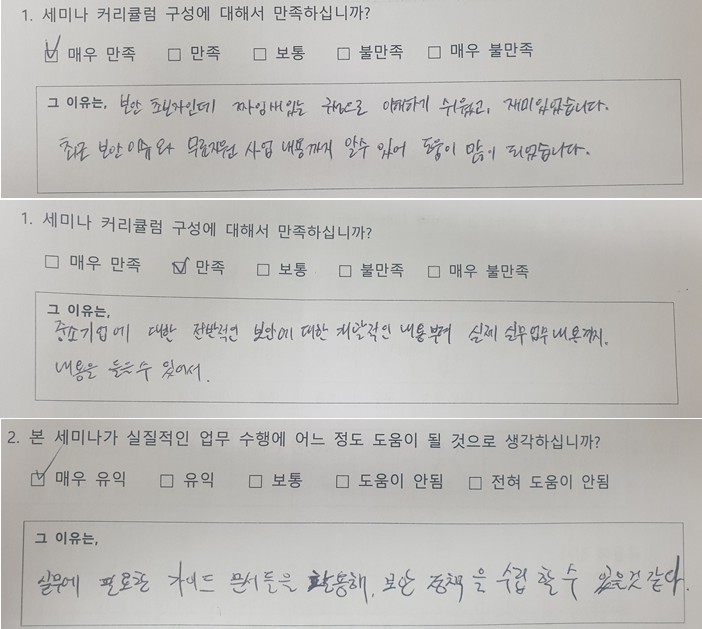 1. 세미나 커리큘럼 구성에 대해서 만족하십니까?
☑ 매우 만족 ☐ 만족 ☐ 보통 ☐ 불만족 ☐ 매우 불만족
그 이유는, 보안 초보자인데 짜임새있는 구성으로 이해하기 쉬웠고, 재미있었습니다.
최근 보안 이슈와 무료지원 사업 내용까지 알수 있어 도움이 많이 되었습니다.
1. 세미나 커리큘럼 구성에 대해서 만족하십니까?
☐ 매우 만족 ☑ 만족 ☐ 보통 ☐ 불만족 ☐ 매우 불만족
그 이유는,
중소기업에 대한 전반적인 보안에 대한 개괄적인 내용부터 실제 실무업무 내용까지.
내용을 들을수 있어서.
2. 본 세미나가 실질적인 업무 수행에 어느 정도 도움이 될 것으로 생각하십니까?
☑ 매우 유익 ☐ 유익 ☐ 보통 ☐ 도움이 안됨 ☐ 전혀 도움이 안됨
그 이유는,
실무에 필요한 가이드 문서들을 활용해, 보안 정책을 수립 할 수 있을것 같다.